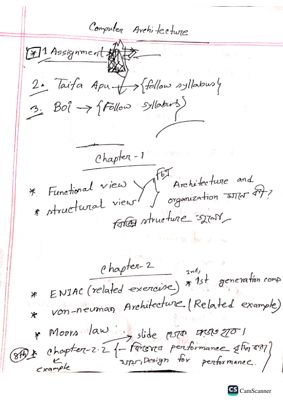 Computer Architecture
* 1 Assignment
2. Taifa Apu → {follow syllabus}
3. BOF → {Follow syllabus}
Chapter-1
* Functional view
* structural view
Architecture and
organization মানে কী?
structure
Chapter-2
* ENIAC (related exercise) * 1st generation comp
* von-neuman Architecture (Related example)
* Moors law → slide থেকে
* chapter-2.2 {- কিভাবে performance বৃদ্ধি করা
example
Design for performance.
CS CamScanner